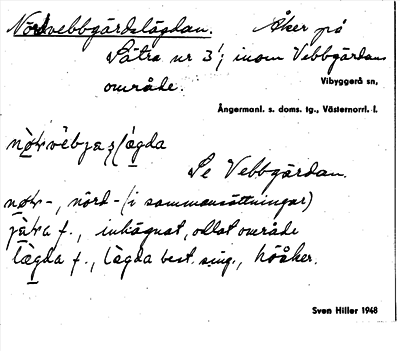 Nordvebbgårdslägdan. Åker på
Sätra nr 3¹; inom Vebbgårdans
område.
Vibyggerå sn,
Ångermanl. s. doms. tg., Västernorrl. l.
Se Vebbgårdan.
nọr-, nord- (i sammansättningar)
f., inhägnat, odlat område
lägda f., lägda best. sing., höåker.
Sven Hiller 1948